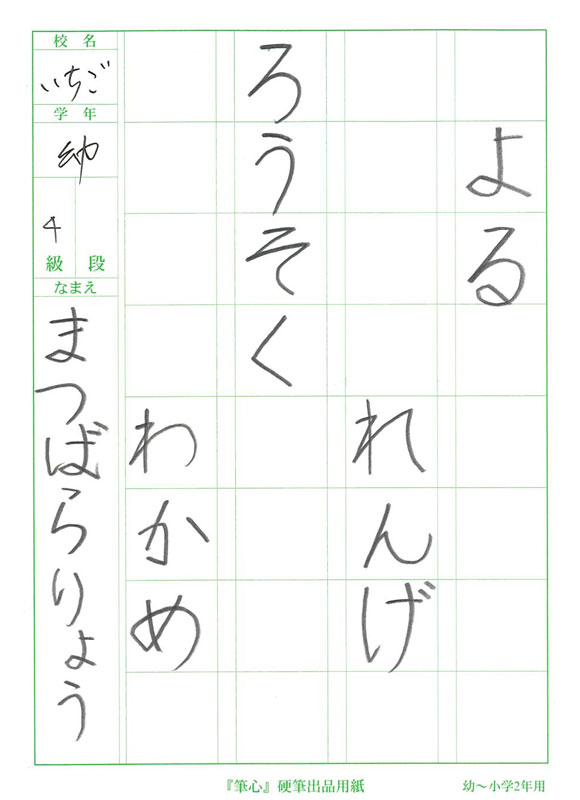 よる
れんげ
ろうそく
わかめ
校名
いちご
学年
幼
4
級 段
なまえ
まつばらりょう
『筆心』硬筆出品用紙
幼～小学2年用